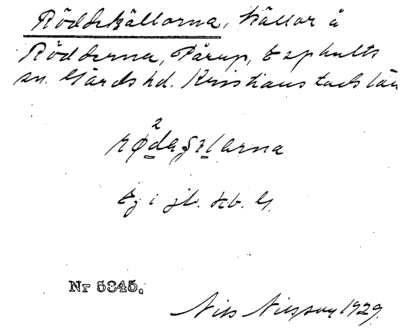 Röddekällorna, källor å
Rödderna, Pårup, Esphults
sn. Gärds hd. Kristianstads län
Ej i jb.
Nr 5845.
Nils Nilsson 1929.